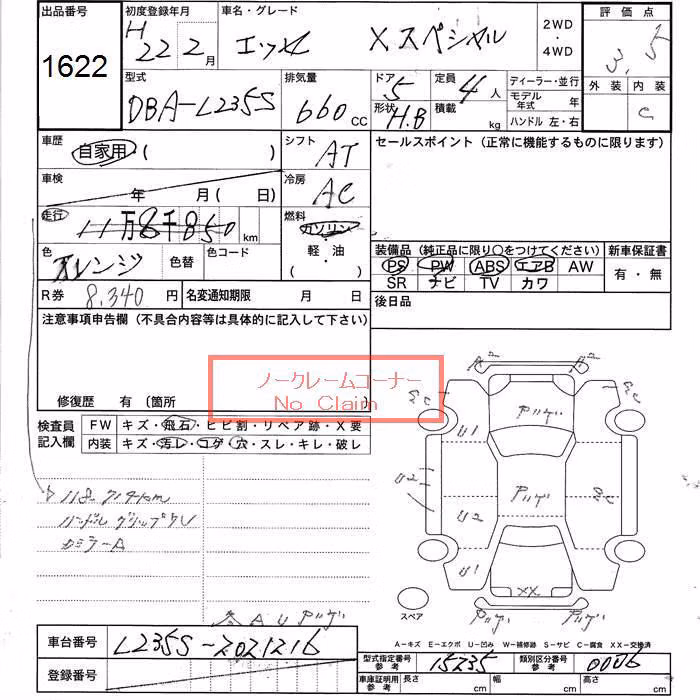 出品番号 初度登録年月 車名・グレード 2WD・4WD 評価点
1622 H22 2月 エッセ Xスペシャル 3.5
型式 排気量 ドア 5 定員 4人 ディーラー・並行 外装 内装
DBA-L235S 660CC 形状 H.B 積載 kg モデル年式 年 C
ハンドル 左・右
車歴 自家用・( ) シフト AT セールスポイント（正常に機能するものに限ります）
車検 年 月 ( 日) 冷房 AC
走行 11万8千850km 燃料 ガソリン
色 オレンジ 色替 色コード 軽油 ( ・ )
装備品（純正品に限り○をつけてください） 新車保証書
PS PW ABS エアB AW 有・無
SR ナビ TV カワ
R券 8,340円 名変通知期限 月 日 後日品
注意事項申告欄（不具合内容等は具体的に記入して下さい）
ノークレームコーナー
No Claim
修復歴 有（箇所
検査員記入欄 FW キズ・飛石・ヒビ割・リペア跡・X要
内装 キズ・汚レ・コゲ・穴・スレ・キレ・破レ
118,714km
ハンドルグリップクリ
カミラーA
A2 A2
U1 アハゲ
U2 アハゲ
U2
U1 XX
スペア アハゲ アハゲ
各AUアハゲ
A-キズ E-エクボ U-凹み W-補修跡 S-サビ C-腐食 XX-交換済
車台番号 L235S-2021216
型式指定番号 参考 15235 類別区分番号 参考 0006
登録番号
車庫証明用 参考 長さ cm 幅 cm 高さ cm